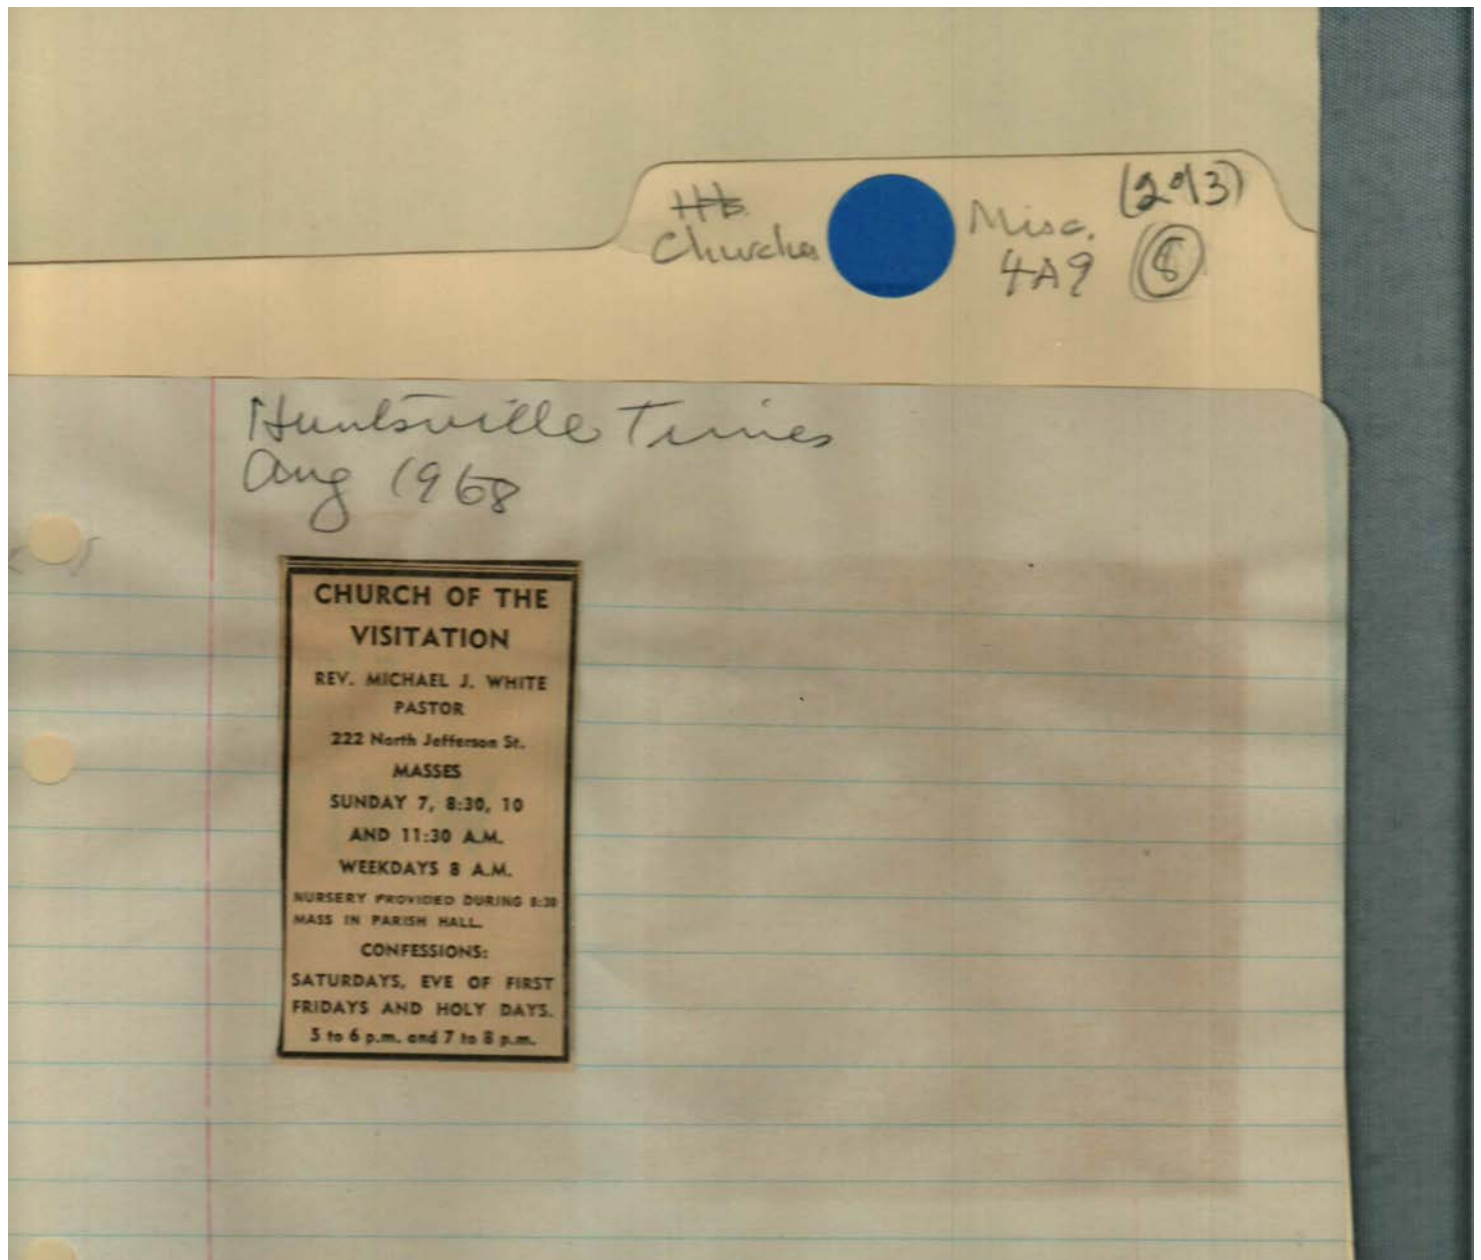 Hb
Churches
Misc.
4A9
(213)
Huntsville Times
Aug 1968
CHURCH OF THE
VISITATION
REV. MICHAEL J. WHITE
PASTOR
222 North Jefferson St.
MASSES
SUNDAY 7, 8:30, 10
AND 11:30 A.M.
WEEKDAYS 8 A.M.
NURSERY PROVIDED DURING 8:30
MASS IN PARISH HALL.
CONFESSIONS:
SATURDAYS, EVE OF FIRST
FRIDAYS AND HOLY DAYS.
5 to 6 p.m. and 7 to 8 p.m.